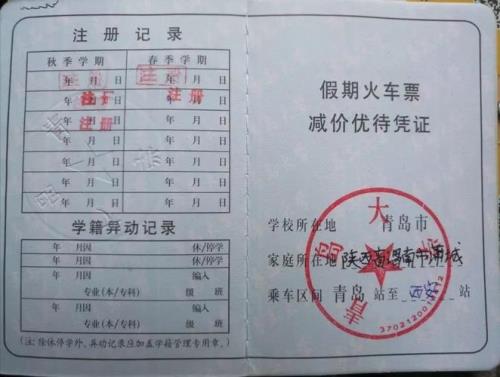 注册记录
秋季学期 春季学期
年 月 日 年 月 日
注册 注册
年 月 日 年 月 日
注册 注册
年 月 日 年 月 日
注册
年 月 日 年 月 日
年 月 日 年 月 日
年 月 日 年 月 日
年 月 日 年 月 日
学籍异动记录
年 月因 休/停学
年 月因 休/停学
年 月因 编入
专业(本/专科) 级 班
年 月因 编入
专业(本/专科) 级 班
(注:除休停学外,异动记录应加盖学籍管理专用章。)
假期火车票
减价优待凭证
学校所在地 青岛市
家庭所在地 陕西省渭南市蒲城
乘车区间 青岛 站至 站
青岛大